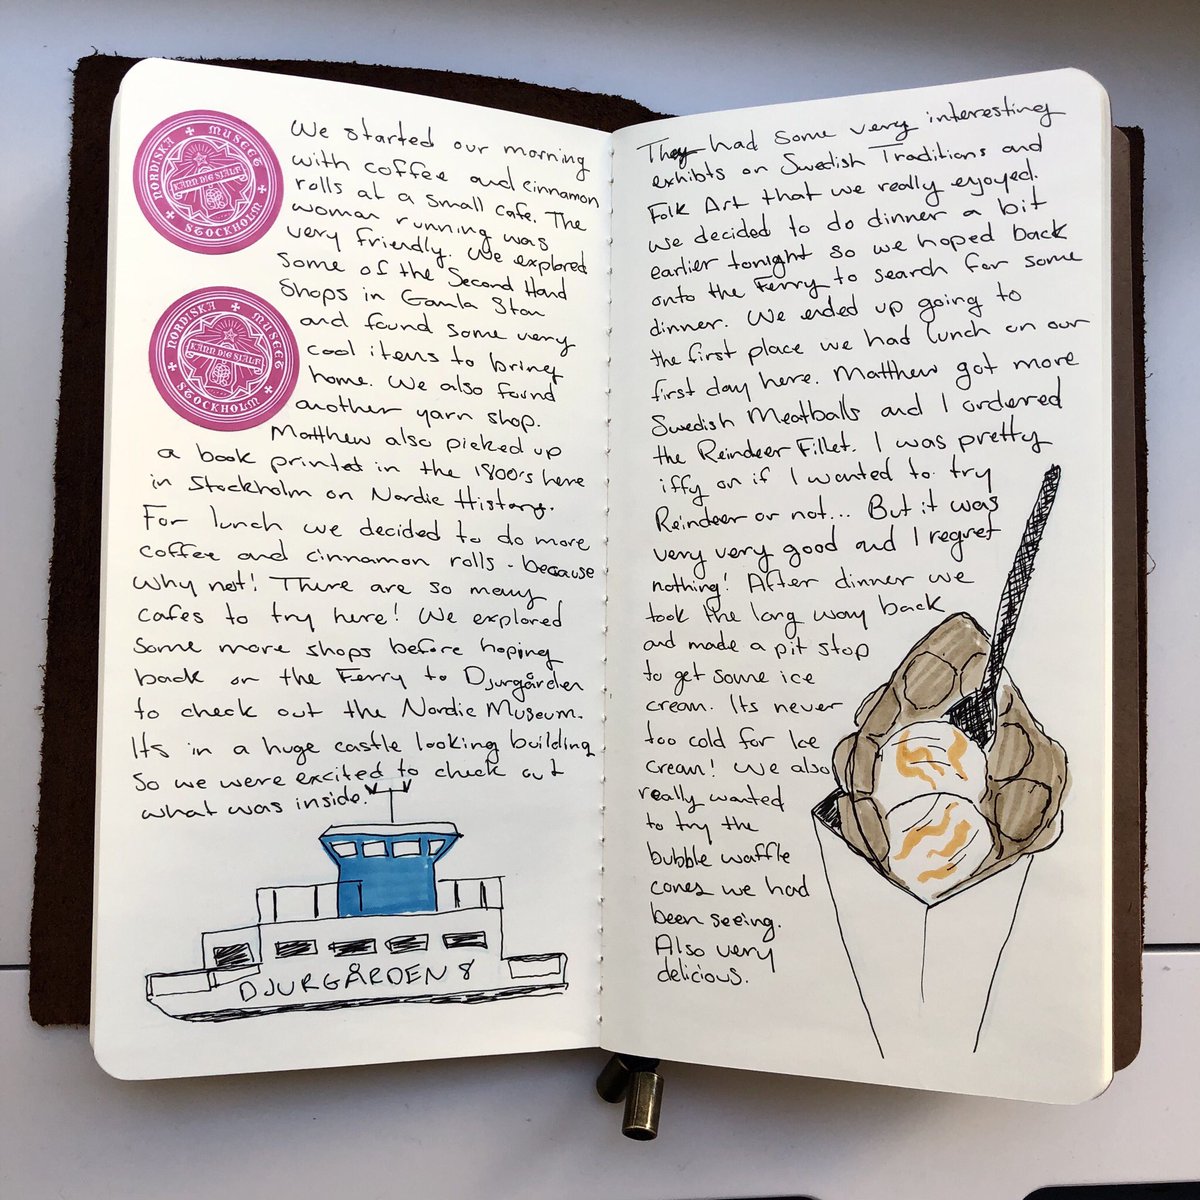 NORDISKA MUSEET STOCKHOLM
KÄNN DIG SJÄLF
NORDISKA MUSEET STOCKHOLM
KÄNN DIG SJÄLF
We started our morning
with coffee and cinnamon
rolls at a small cafe. The
woman running was
very friendly. We explored
some of the Second Hand
Shops in Gamla Stan
and found some very
cool items to bring
home. We also found
another yarn shop.
Matthew also picked up
a book printed in the 1800's here
in Stockholm on Nordic History.
For lunch we decided to do more
coffee and cinnamon rolls - because
why not! There are so many
cafes to try here! We explored
some more shops before hoping
back on the Ferry to Djurgården
to check out the Nordic Museum.
Its in a huge castle looking building
so we were excited to check out
what was inside.
DJURGÅRDEN 8
They had some very interesting
exhibts on Swedish Traditions and
Folk Art that we really enjoyed.
We decided to do dinner a bit
earlier tonight so we hoped back
onto the Ferry to search for some
dinner. We ended up going to
the first place we had lunch on our
first day here. Matthew got more
Swedish Meatballs and I ordered
the Reindeer Fillet. I was pretty
iffy on if I wanted to try
Reindeer or not... But it was
very very good and I regret
nothing! After dinner we
took the long way back
and made a pit stop
to get some ice
cream. Its never
too cold for Ice
Cream! We also
really wanted
to try the
bubble waffle
cones we had
been seeing.
Also very
delicious.